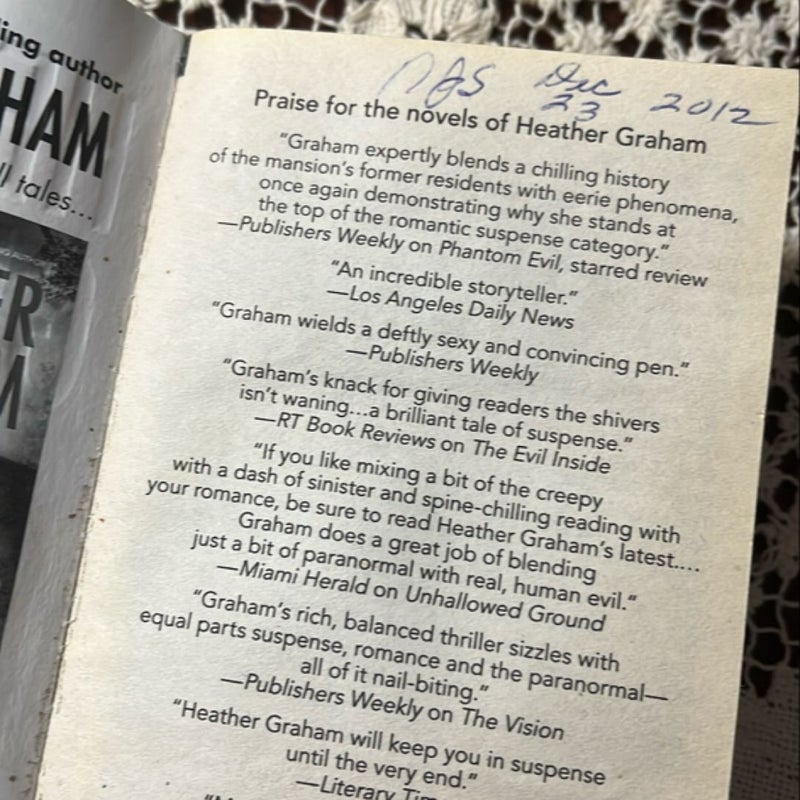 ing author
HAM
ll tales...
ER
M
Dec
23
2012
Praise for the novels of Heather Graham
"Graham expertly blends a chilling history
of the mansion's former residents with eerie phenomena,
once again demonstrating why she stands at
the top of the romantic suspense category."
—Publishers Weekly on Phantom Evil, starred review
"An incredible storyteller."
—Los Angeles Daily News
"Graham wields a deftly sexy and convincing pen."
—Publishers Weekly
"Graham's knack for giving readers the shivers
isn't waning...a brilliant tale of suspense."
—RT Book Reviews on The Evil Inside
"If you like mixing a bit of the creepy
with a dash of sinister and spine-chilling reading with
your romance, be sure to read Heather Graham's latest....
Graham does a great job of blending
just a bit of paranormal with real, human evil."
—Miami Herald on Unhallowed Ground
"Graham's rich, balanced thriller sizzles with
equal parts suspense, romance and the paranormal—
all of it nail-biting."
—Publishers Weekly on The Vision
"Heather Graham will keep you in suspense
until the very end."
—Literary Tim